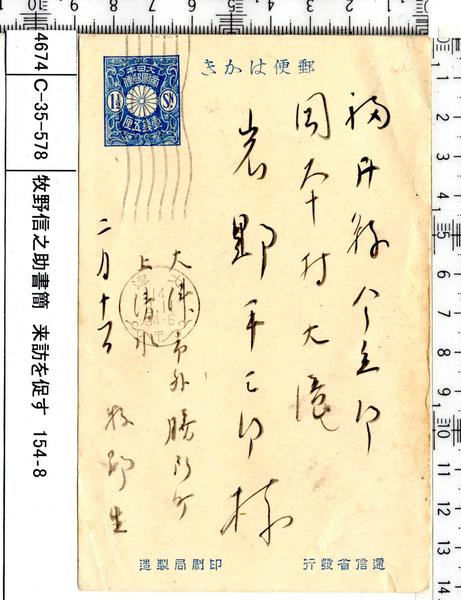 4674 C-35-578 牧野信之助書簡 来訪を促す 154-8
郵便はかき
1½ Sn
壹錢五厘
福井縣今立郡
岡本村大滝
岩野平三郎様
大津市外膳所町
上清水
二月十一日
牧野生
遞信省發行
印刷局製造